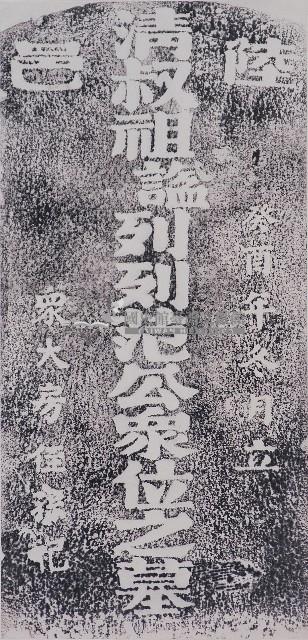 陸邑
癸酉年冬月立
清叔祖諡列列公眾位之墓
眾大房侄孫祀